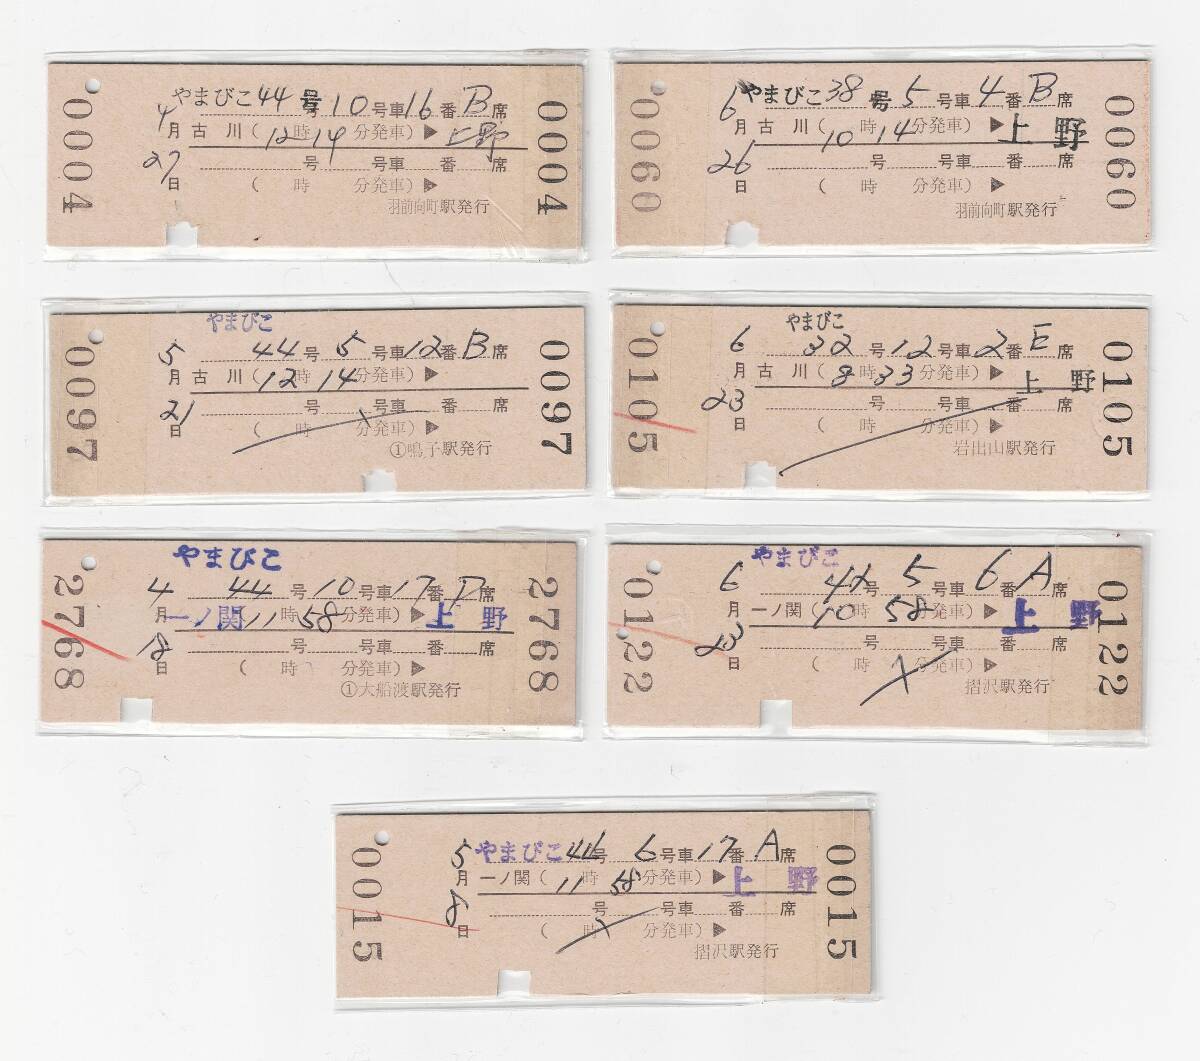 0004
やまびこ 44 号 10 号車 16 番 B 席
4月 古川 (12時14分発車)▶ 上野
27日 号 号車 番 席
( 時 分発車)▶
羽前向町駅発行
0004
0060
やまびこ 38 号 5 号車 4 番 B 席
6月 古川 (10時14分発車)▶ 上野
26日 号 号車 番 席
( 時 分発車)▶
羽前向町駅発行
0060
0097
やまびこ
5月 44 号 5 号車 12 番 B 席
古川 (12時14分発車)▶
21日 号 号車 番 席
( 時 分発車)▶
①鳴子駅発行
0097
0105
やまびこ
6月 32 号 12 号車 2 番 E 席
古川 (8時33分発車)▶ 上野
23日 号 号車 番 席
( 時 分発車)▶
岩出山駅発行
0105
2768
やまびこ
4月 44 号 10 号車 17 番 D 席
一ノ関 11時58分発車)▶ 上野
18日 号 号車 番 席
( 時 分発車)▶
①大船渡駅発行
2768
0122
やまびこ
6月 号 5 号車 6 番 A 席
一ノ関 (10時58分発車)▶ 上野
23日 号 号車 番 席
( 時 分発車)▶
摺沢駅発行
0122
0015
5月 やまびこ 号 6 号車 17 番 A 席
一ノ関 (11時58分発車)▶ 上野
8日 号 号車 番 席
( 時 分発車)▶
摺沢駅発行
0015